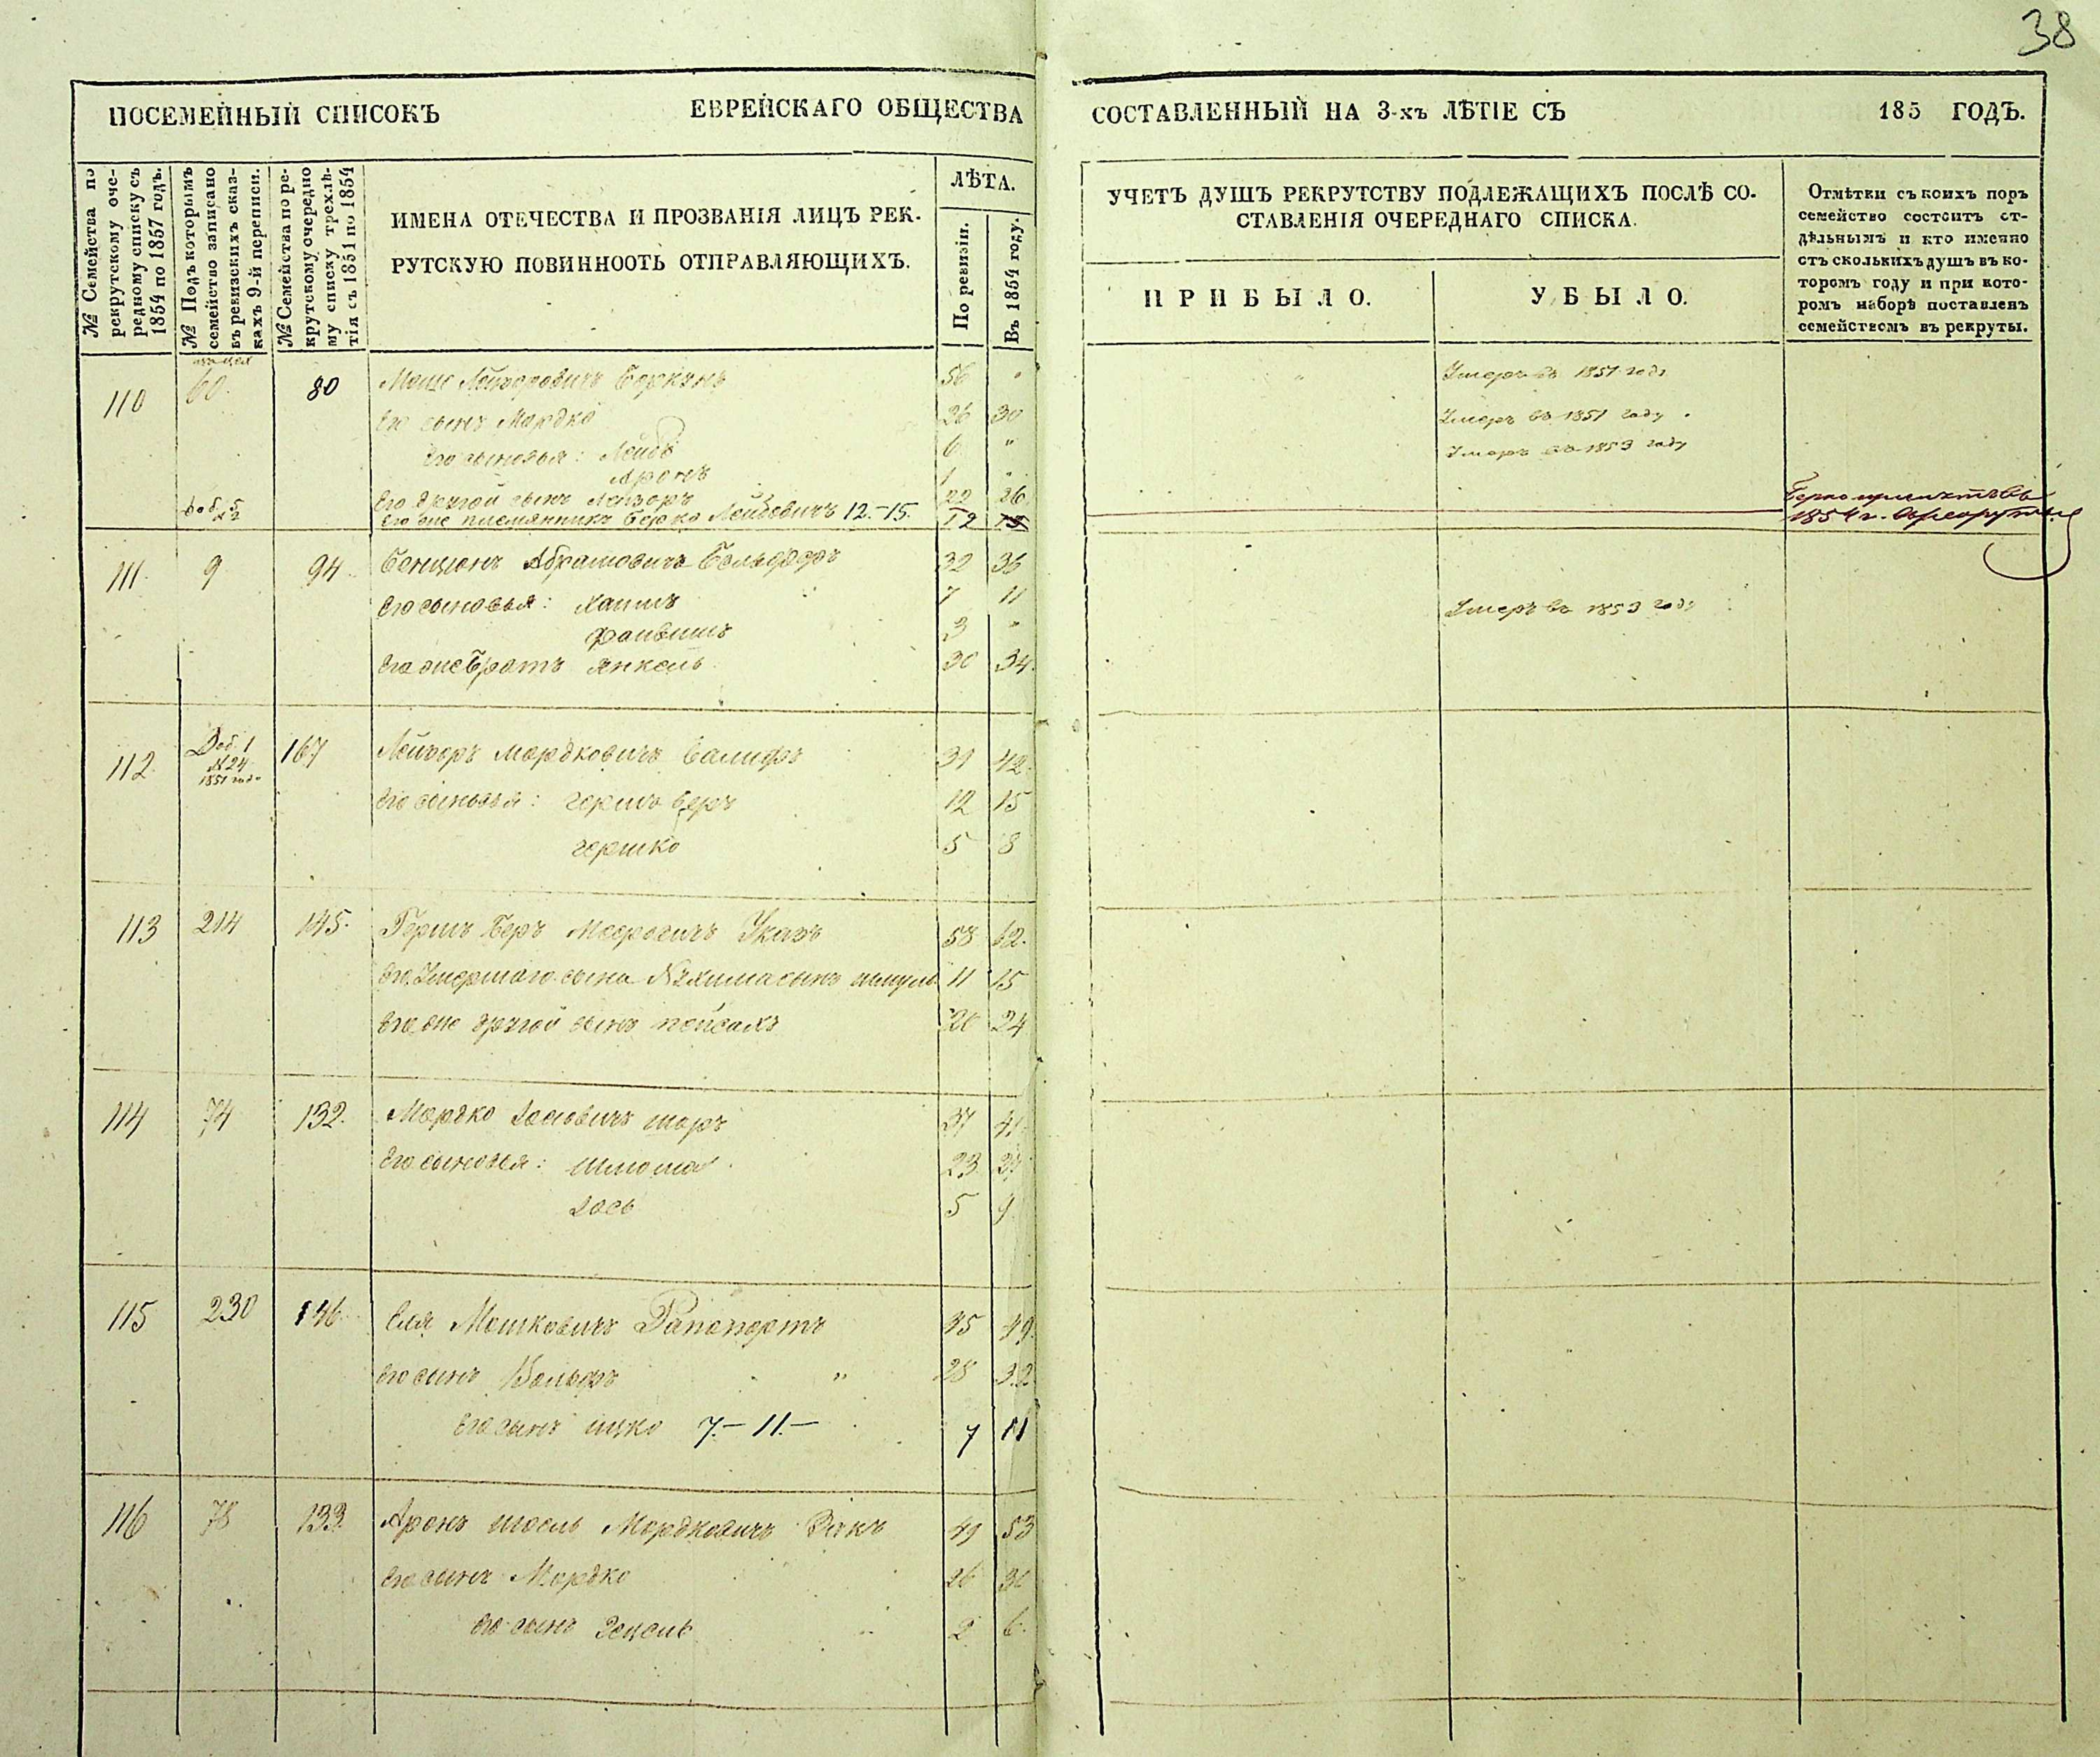 38
ПОСЕМЕЙНЫЙ СПИСОКЪ ЕВРЕЙСКАГО ОБЩЕСТВА СОСТАВЛЕННЫЙ НА 3-хъ ЛѢТІЕ СЪ 185 ГОДЪ.
№ Семейства по
рекрутскому оче-
редному списку съ
1854 по 1857 годъ.
№ Подъ которымъ
семейство записано
въ ревизскихъ сказ-
кахъ 9-й переписи.
№ Семейства по ре-
крутскому очередно
му списку трехлѣ-
тія съ 1851 по 1854
ИМЕНА ОТЕЧЕСТВА И ПРОЗВАНІЯ ЛИЦЪ РЕК-
РУТСКУЮ ПОВИННООТЬ ОТПРАВЛЯЮЩИХЪ.
ЛѢТА.
По ревизіи.
Въ 1854 году.
УЧЕТЪ ДУШЪ РЕКРУТСТВУ ПОДЛЕЖАЩИХЪ ПОСЛѢ СО-
СТАВЛЕНІЯ ОЧЕРЕДНАГО СПИСКА.
ПРИБЫЛО.
УБЫЛО.
Отмѣтки съ коихъ поръ
семейство состоитъ от-
дѣльнымъ и кто именно
стъ сколькихъ душъ въ ко-
торомъ году и при кото-
ромъ наборѣ поставленъ
семействомъ въ рекруты.
110 60 80 Мошко Лейзоровичъ 56 " Умеръ въ 1851 году
Его сынъ Мордко 26 30 Умеръ въ 1851 году
Его сыновья: Лейбъ 6 " Умеръ въ 1853 году
Аронъ 1 "
Его другой сынъ Лейзоръ 22 26
Его же племянникъ Берко Лейбовичъ 12.-15. 12 15
1854 г.
111 9 94 Бенціонъ Абрамовичъ 32 36
Его сыновья: Хаимъ 7 11 Умеръ въ 1853 году
Файвишъ 3 "
Его же братъ Янкель 30 34
112 Доб. 1 № 24 1851 года 167 Лейзоръ Мордковичъ 39 42
Его сыновья: Гершъ Беръ 12 15
Гершко 5 8
113 214 145. Гершъ Беръ Мееровичъ 58 62.
Его умершаго сына Нухима сынъ Шмуль 11 15
Его же другой сынъ Пейсахъ 20 24
114 74 132. Мордко Іосіовичъ Шоръ 37 41
Его сыновья: Шлюма 23 27
Іось 5 9
115 230 146. Еля Мошковичъ Рапопортъ 45 49
Его сынъ Вольфъ " 28 32
Его сынъ Ицко 7.- 11.- 7 11
116 78 133. Аронъ Іосель Мордковичъ 49 53
Его сынъ Мордко 26 30
Его сынъ 2 6